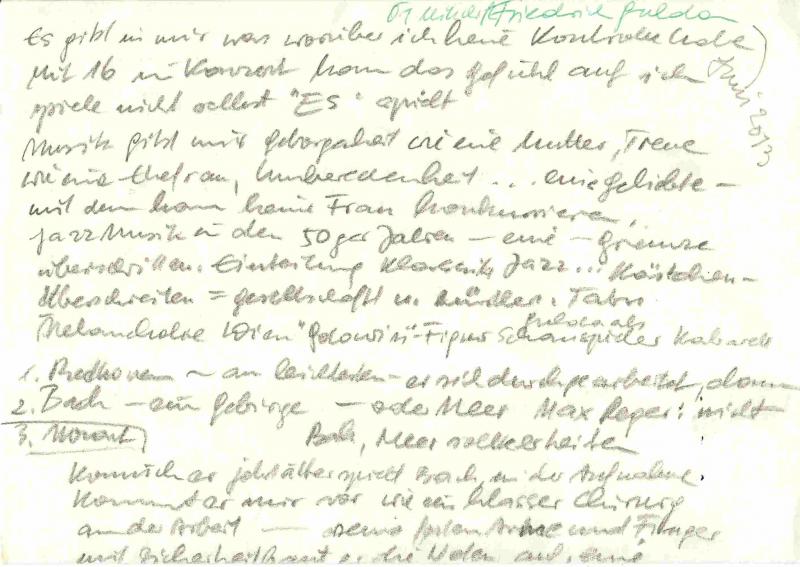 Friedrich Gulda
Juni 2013
Es gibt in mir was worüber ich keine Kontrolle habe
Mit 16 in Konzert kam das Gefühl auf ich
spiele nicht selbst "ES" spielt
Musik gibt mir Geborgenheit wie eine Mutter, Treue
wie eine Ehefrau, ... eine Geliebte –
mit dem kann keine Frau konkurrieren.
Jazz Musik in den 50ger Jahren – eine – Grenze
überschritten. Einteilung Klassik Jazz... Kästchen –
Überschreiten = gesellschaftl u. künstler. Tabu
Melancholie Wien "Golowin" – Figur Schauspieler Gulda als Kabarett
1. Beethoven – am leichtesten – er sich durchgearbeitet, dann
2. Bach – ein Gebirge – oder Meer Max Reger: nicht
3. Mozart Bach, Meer sollte er heißen
Komisch er jetzt älter spielt Bach, in der Aufnahme
kommt er mir vor wie ein blasser Chirurg
an der Arbeit — seine Arme und Finger
mit Sicherheit er die Noten auf, eine